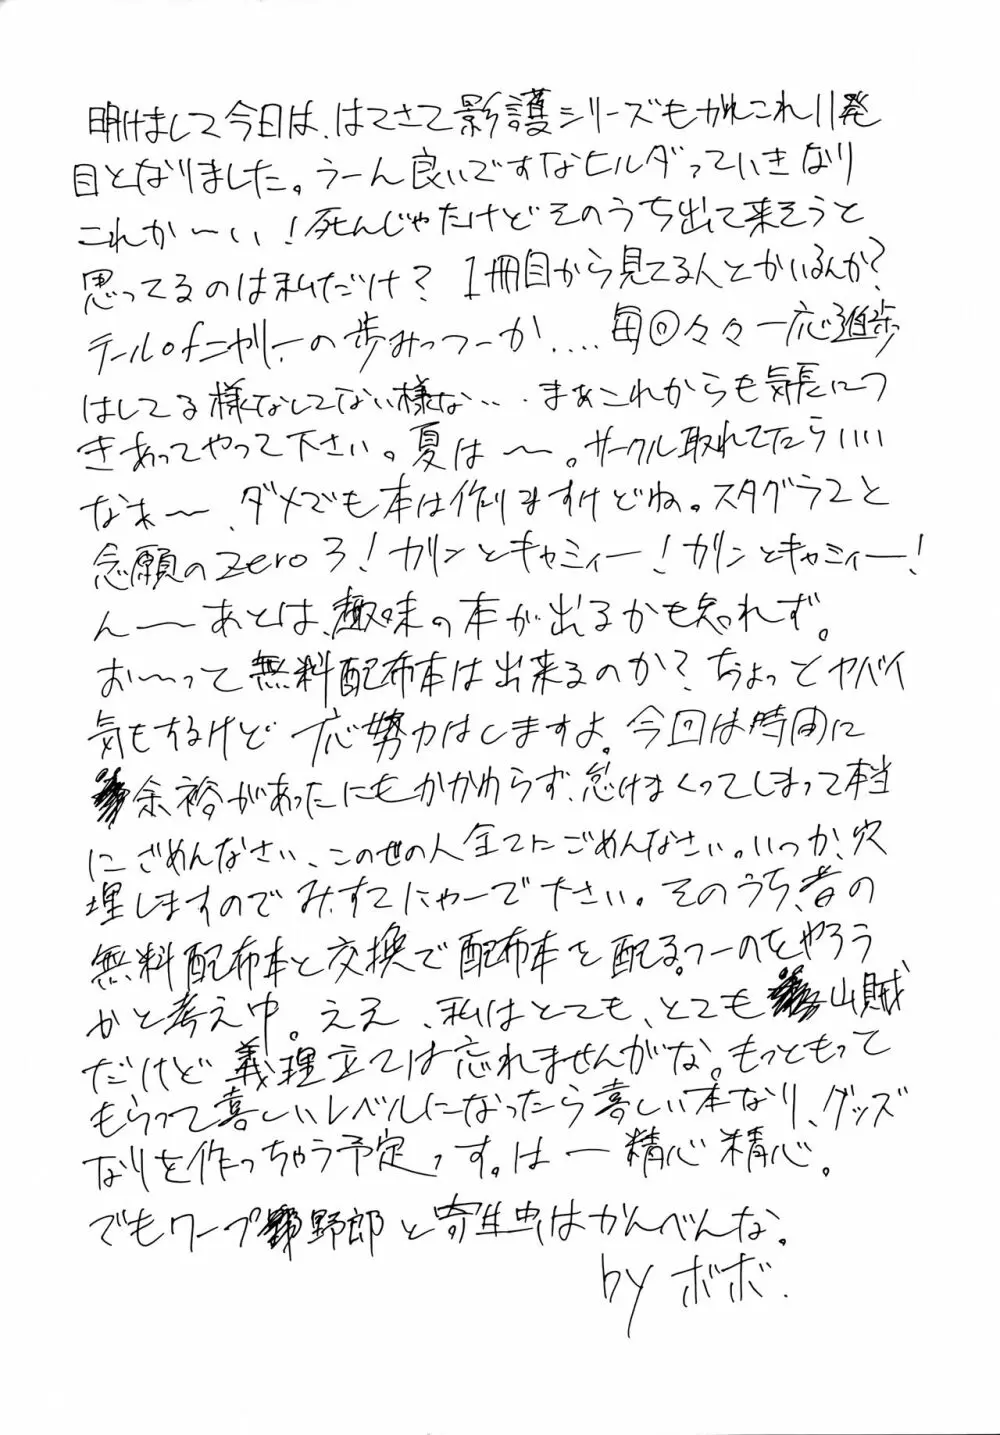 明けまして今日は、はてさて影護シリーズもかれこれ11発
目となりました。うーん良いですなヒルダっていきなり
これか～い!死んじゃたけどそのうち出て来そうと
思ってるのは私だけ? 1冊目から見てる人とかいるんか?
テールofニャリーの歩みっつーか....毎回々々一応進歩
はしてる様なしてない様な... まあこれからも気長につ
きあってやって下さい。夏は～。サークル取れてたらいい
なぁ～、ダメでも本は作りますけどね。スタグラ2と
念願のzero3!カリンとキャミィー!カリンとキャミィー!
ん～～あとは、趣味の本が出るかも知れず。
お～って無料配布本は出来るのか?ちょっとヤバイ
気もするけど一応努力はしますよ。今回は時間に
余裕があったにもかかわらず、怠けまくってしまって本当
にごめんなさい、この世の人全てにごめんなさい。いつか、穴
埋しますのでみすてにゃーで下さい。そのうち、昔の
無料配布本と交換で配布本を配るつーのをやろう
かと考え中。ええ、私はとても、とても山賊
だけど義理立ては忘れませんがな。もっともって
もらって喜しいレベルになったら喜しい本なり、グッズ
なりを作っちゃう予定っす。は～精心精心。
でもワープ野郎と寄生虫はかんべんな。
by ボボ.